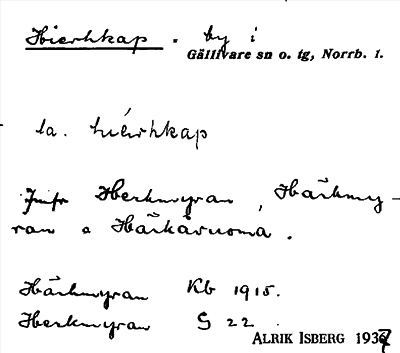 Hierhkap . by i
Gällivare sn o. tg, Norrb. l.
la. hiérhkap
Jmfr Herkmyran, Härkmy-
ran o Härkåvuoma.
Härkmyran Kb 1915.
Herkmyran G 22
ALRIK ISBERG 1937